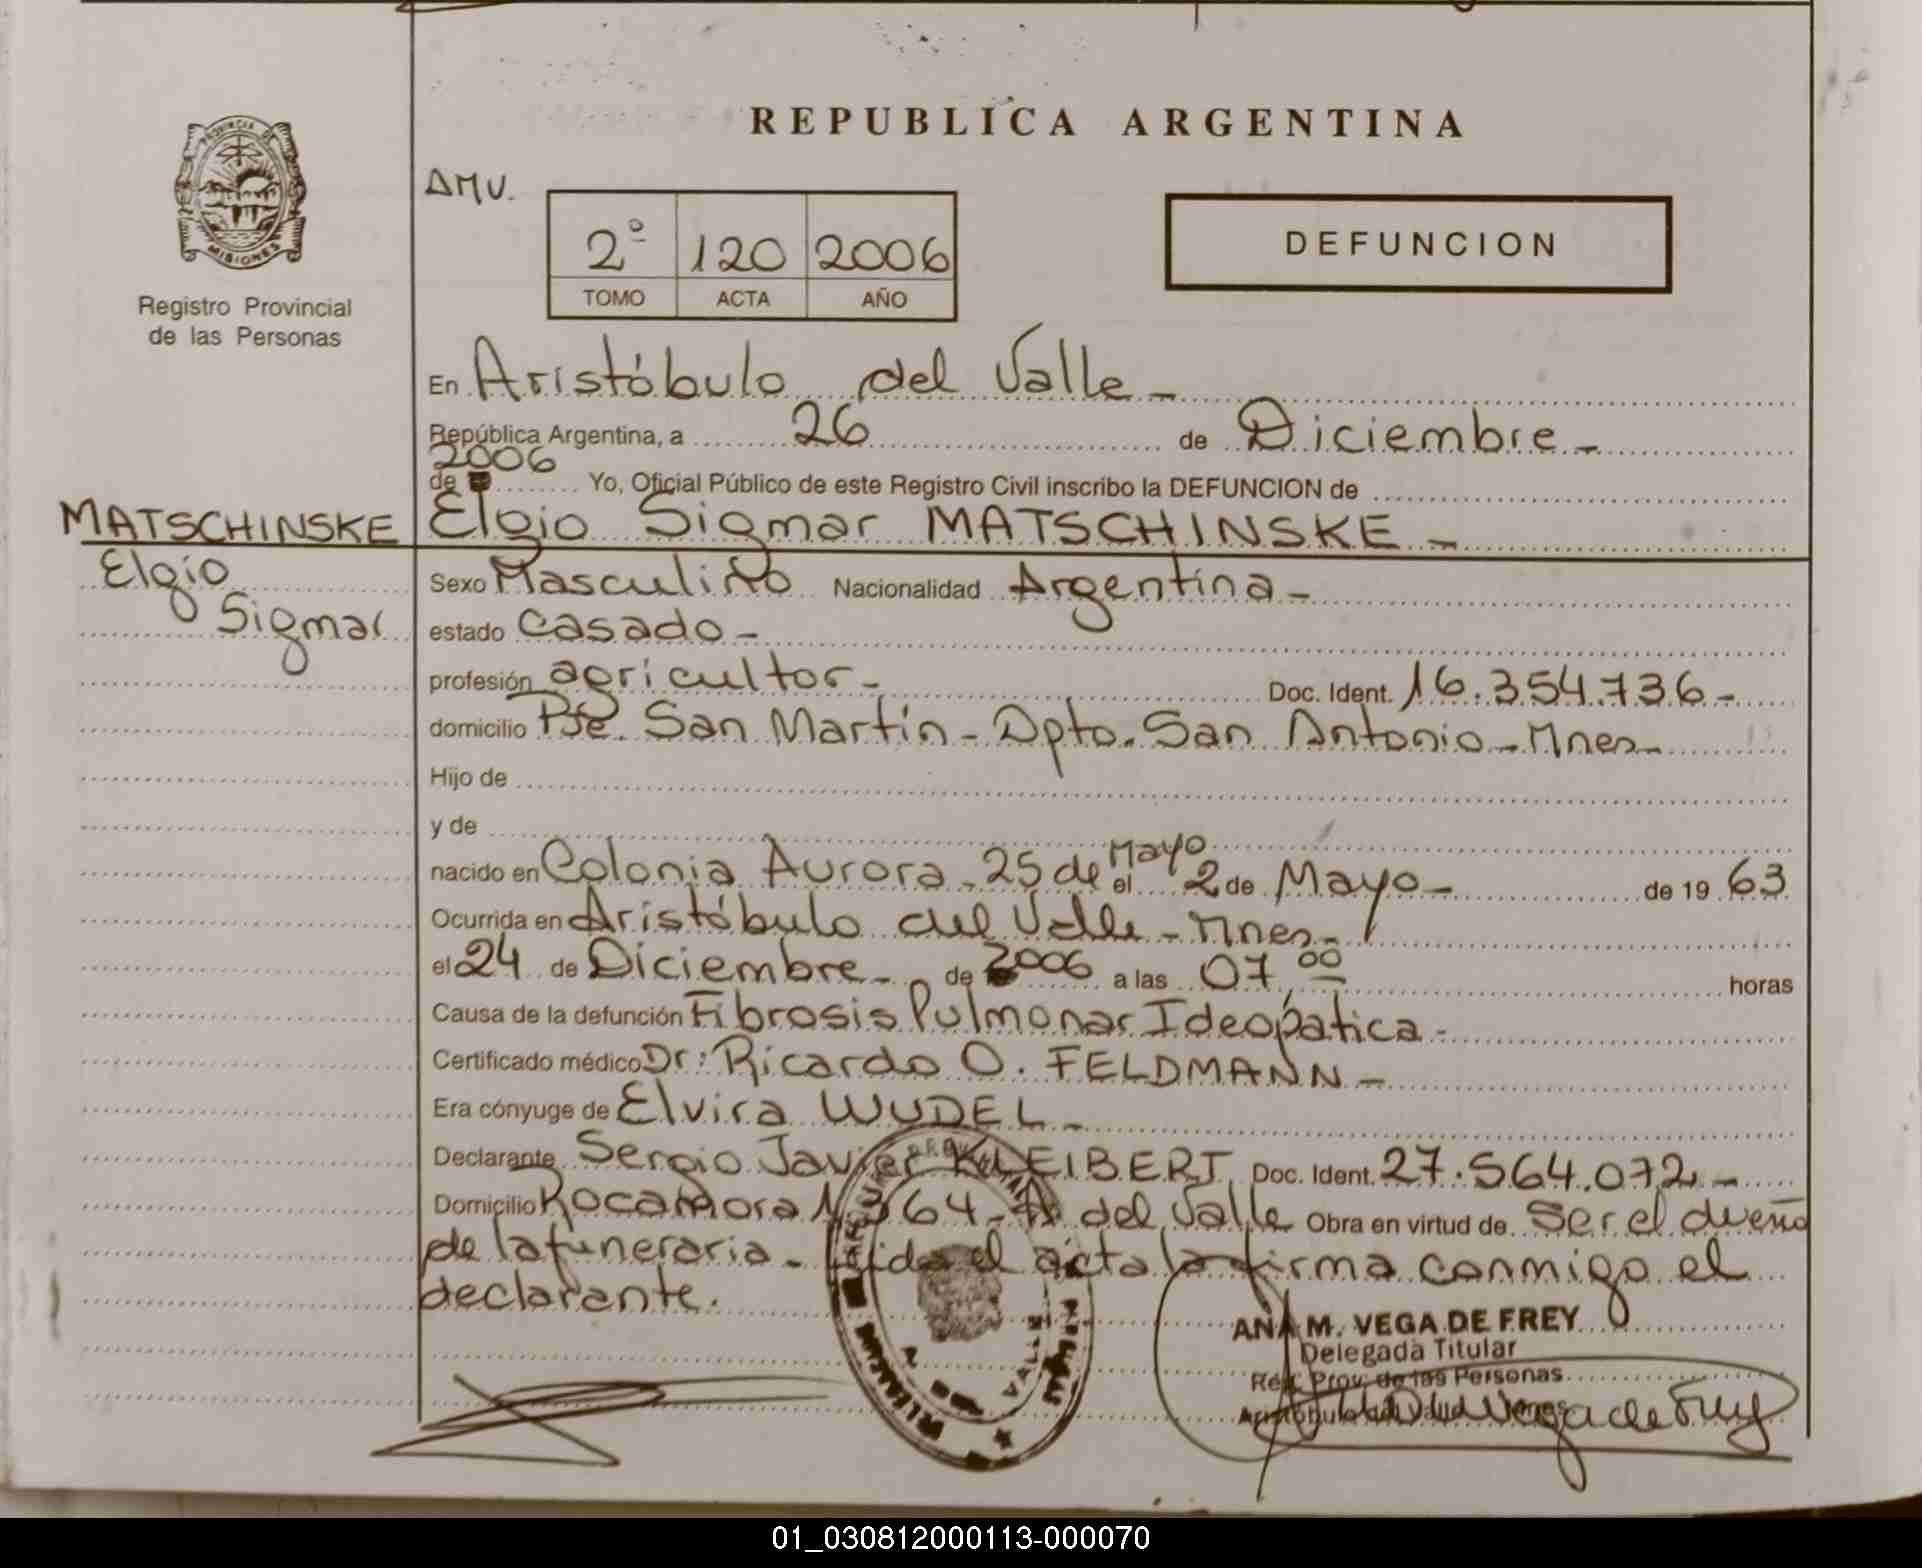 REPUBLICA ARGENTINA
PROVINCIA DE
MISIONES
AMV.
2º 120 2006
TOMO ACTA AÑO
DEFUNCION
Registro Provincial
de las Personas
En Aristóbulo del Valle -
República Argentina, a 26 de Diciembre -
2006
de Yo, Oficial Público de este Registro Civil inscribo la DEFUNCION de
MATSCHINSKE Elgio Sigmar MATSCHINSKE -
Elgio
Sigmar
Sexo Masculino Nacionalidad Argentina -
estado casado -
profesión agricultor - Doc. Ident. 16.354.736 -
domicilio Pje. San Martín - Dpto. San Antonio - Mnes -
Hijo de
y de
nacido en Colonia Aurora - 25 de Mayo el 2 de Mayo - de 19 63
Ocurrida en Aristóbulo del Valle - Mnes -
el 24 de Diciembre - de 2006 a las 07,00 horas
Causa de la defunción Fibrosis Pulmonar Ideopática -
Certificado médico Dr: Ricardo O. FELDMANN -
Era cónyuge de Elvira WUDEL -
Declarante Sergio Javier KLEIBERT Doc. Ident. 27.564.072 -
Domicilio Rocamora Nº 364 - A del Valle Obra en virtud de Ser el dueño
de la funeraria - Leida el acta la firma conmigo el
declarante.
VALLE
ANA M. VEGA DE FREY
Delegada Titular
Reg. Prov. de las Personas
Aristóbulo del Valle Mnes
01_030812000113-000070